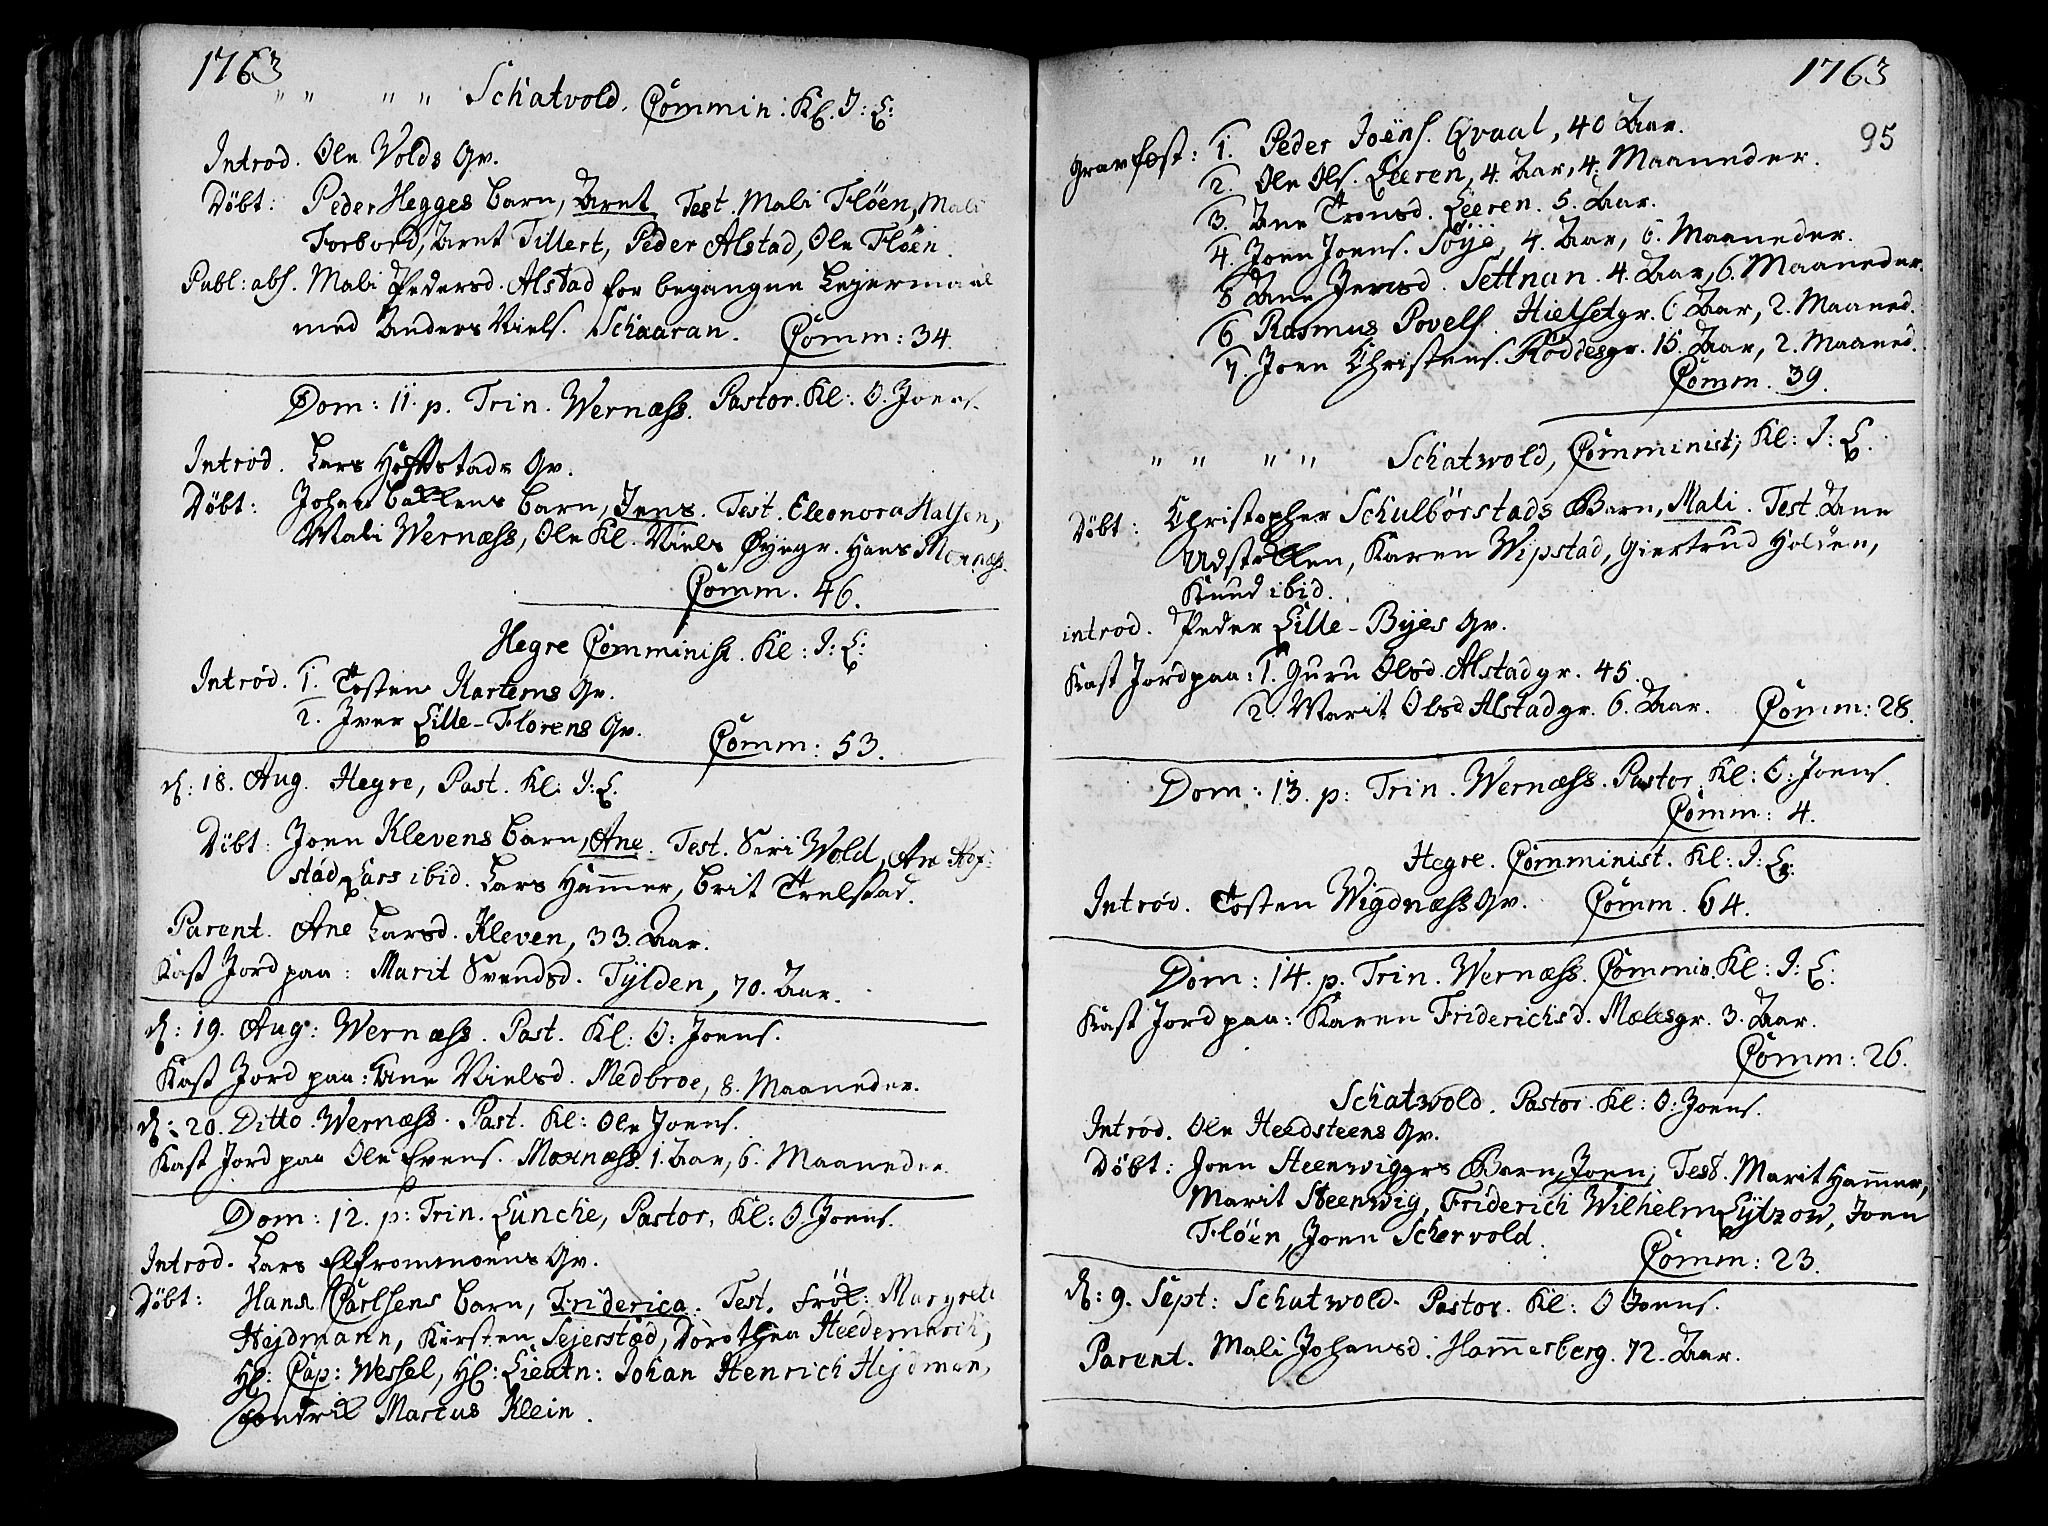 1763
" " " " Schatvold. Commin: Kl. I: L:
Introd. Ole Volds Qv.
Døbt: Peder Hegges barn, Arnt Test. Mali Fløen, Mali
Forbord, Arnt Tillert, Peder Alstad, Ole Fløen.
Publ: abs. Mali Pedersd. Alstad for begangne Lejermaal
med Anders Niels. Schaaran. Comm: 34.
Dom: 11. p. Trin. Wernæss. Pastor. Kl: O. Joens.
Introd. Lars Hoffstads Qv.
Døbt: Johan Ballens barn, Jens. Test. Eleonora Halsen,
Mali Wernæss, Ole Kl. Niels Øyegr. Hans Moxnæss.
Comm. 46.
Hegre Comminist. Kl: I: L:
Introd. 1. Tosten Kartems Qv.
2. Iver Lille-Florens Qv.
Comm: 53.
d: 18. Aug. Hegre, Past. Kl: I: L.
Døbt: Joen Klevens barn, Ane. Test. Siri Wold, Ane Hof-
stad Lars ibid. Lars Hammer, Brit Trelstad.
Parent. Ane Larsd. Kleven, 33. Aar.
Kast Jord paa: Marit Svendsd. Tylden, 70. Aar.
d: 19. Aug: Wernæss. Past. Kl: O: Joens.
Kast Jord paa: Ane Nielsd. Medbroe, 8. Maaneder.
d: 20. Ditto. Wernæss. Past. Kl: Ole Joens.
Kast Jord paa Ole Evens. Moxnæss. 1. Aar, 6. Maaneder.
Dom: 12. p: Trin. Lunche, Pastor, Kl: O. Joens.
Introd. Lars Elfrommoens Qv.
Døbt: Hans Carlsens barn, Friderica. Test. Frøl: Margrete
Hejdmann, Kirsten Sejerstad, Dorothea Heedemarck,
Hl: Cap: Wessel, Hl: Lieutn: Johan Henrich Hejdman,
Marcus Klein.
1763
95
Gravfæst: 1. Peder Joens. Qvaal, 40 Aar.
2. Ole Ols. Leeren, 4. Aar, 4. Maaneder.
3. Ane Tronsd. Leeren. 5. Aar.
4. Joen Joens. Søye, 4. Aar, 6. Maaneder.
5 Ane Jensd. Settnan. 4. Aar, 6. Maaneder.
6 Rasmus Povels. Hielsetgr. 6 Aar, 2. Maaned.
7. Joen Christens. Røddesgr. 15. Aar, 2. Maaned.
Comm. 39.
" " " " Schatwold, Comminist, Kl: I: L.
Døbt: Christopher Schulbørstads Barn, Mali. Test. Ane
Udstøllen, Karen Wipstad, Giertrud Holden,
Knud ibid.
introd. Peder Lille-Byes Qv.
Kast Jord paa: 1. Guru Olsd. Alstadgr. 45.
2. Marit Olsd Alstadgr. 6. Aar. Comm: 28.
Dom: 13. p: Trin. Wernæss. Pastor. Kl: O: Joens.
Comm: 4.
Hegre. Comminist. Kl: I: L:
Introd. Tosten Wigdnæss Qv. Comm. 64.
Dom: 14. p. Trin. Wernæss. Commin. Kl: I: L:
Kast Jord paa: Karen Friderichsd. Mælesgr. 3. Aar.
Comm: 26.
Schatwold. Pastor. Kl: O: Joens.
Introd. Ole Heedsteens Qv.
Døbt: Joen Steenwiggrs Barn, Joen; Test. Marit Hammer,
Marit Steenwig, Friderich Wilhelm Lytzow, Joen
Fløen, Joen Schervold.
Comm: 23.
d: 9. Sept: Schatwold. Pastor. Kl: O Joens.
Parent. Mali Johansd. Hammerberg. 72. Aar.